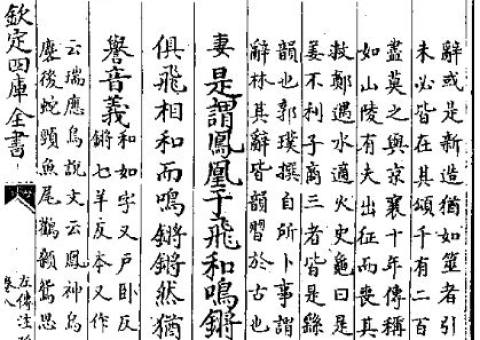 辭或是新造猶如筮者引
未必皆在其頌千有二百
盡莫之與京襄十年傳稱
如山陵有夫出征而喪其
救鄭遇水適火史龜曰是
姜不利子商三者皆是繇
韻也郭璞撰自所卜事謂
辭林其辭皆韻習於古也
妻是謂鳳凰于飛和鳴鏘
俱飛相和而鳴鏘鏘然猶
譽音義
和如字又戶卧反
鏘七羊反本又作
云瑞應鳥說文云鳳神鳥
麐後蛇頸魚尾鸛顙鴛思
欽定四庫全書
左傳注
卷八